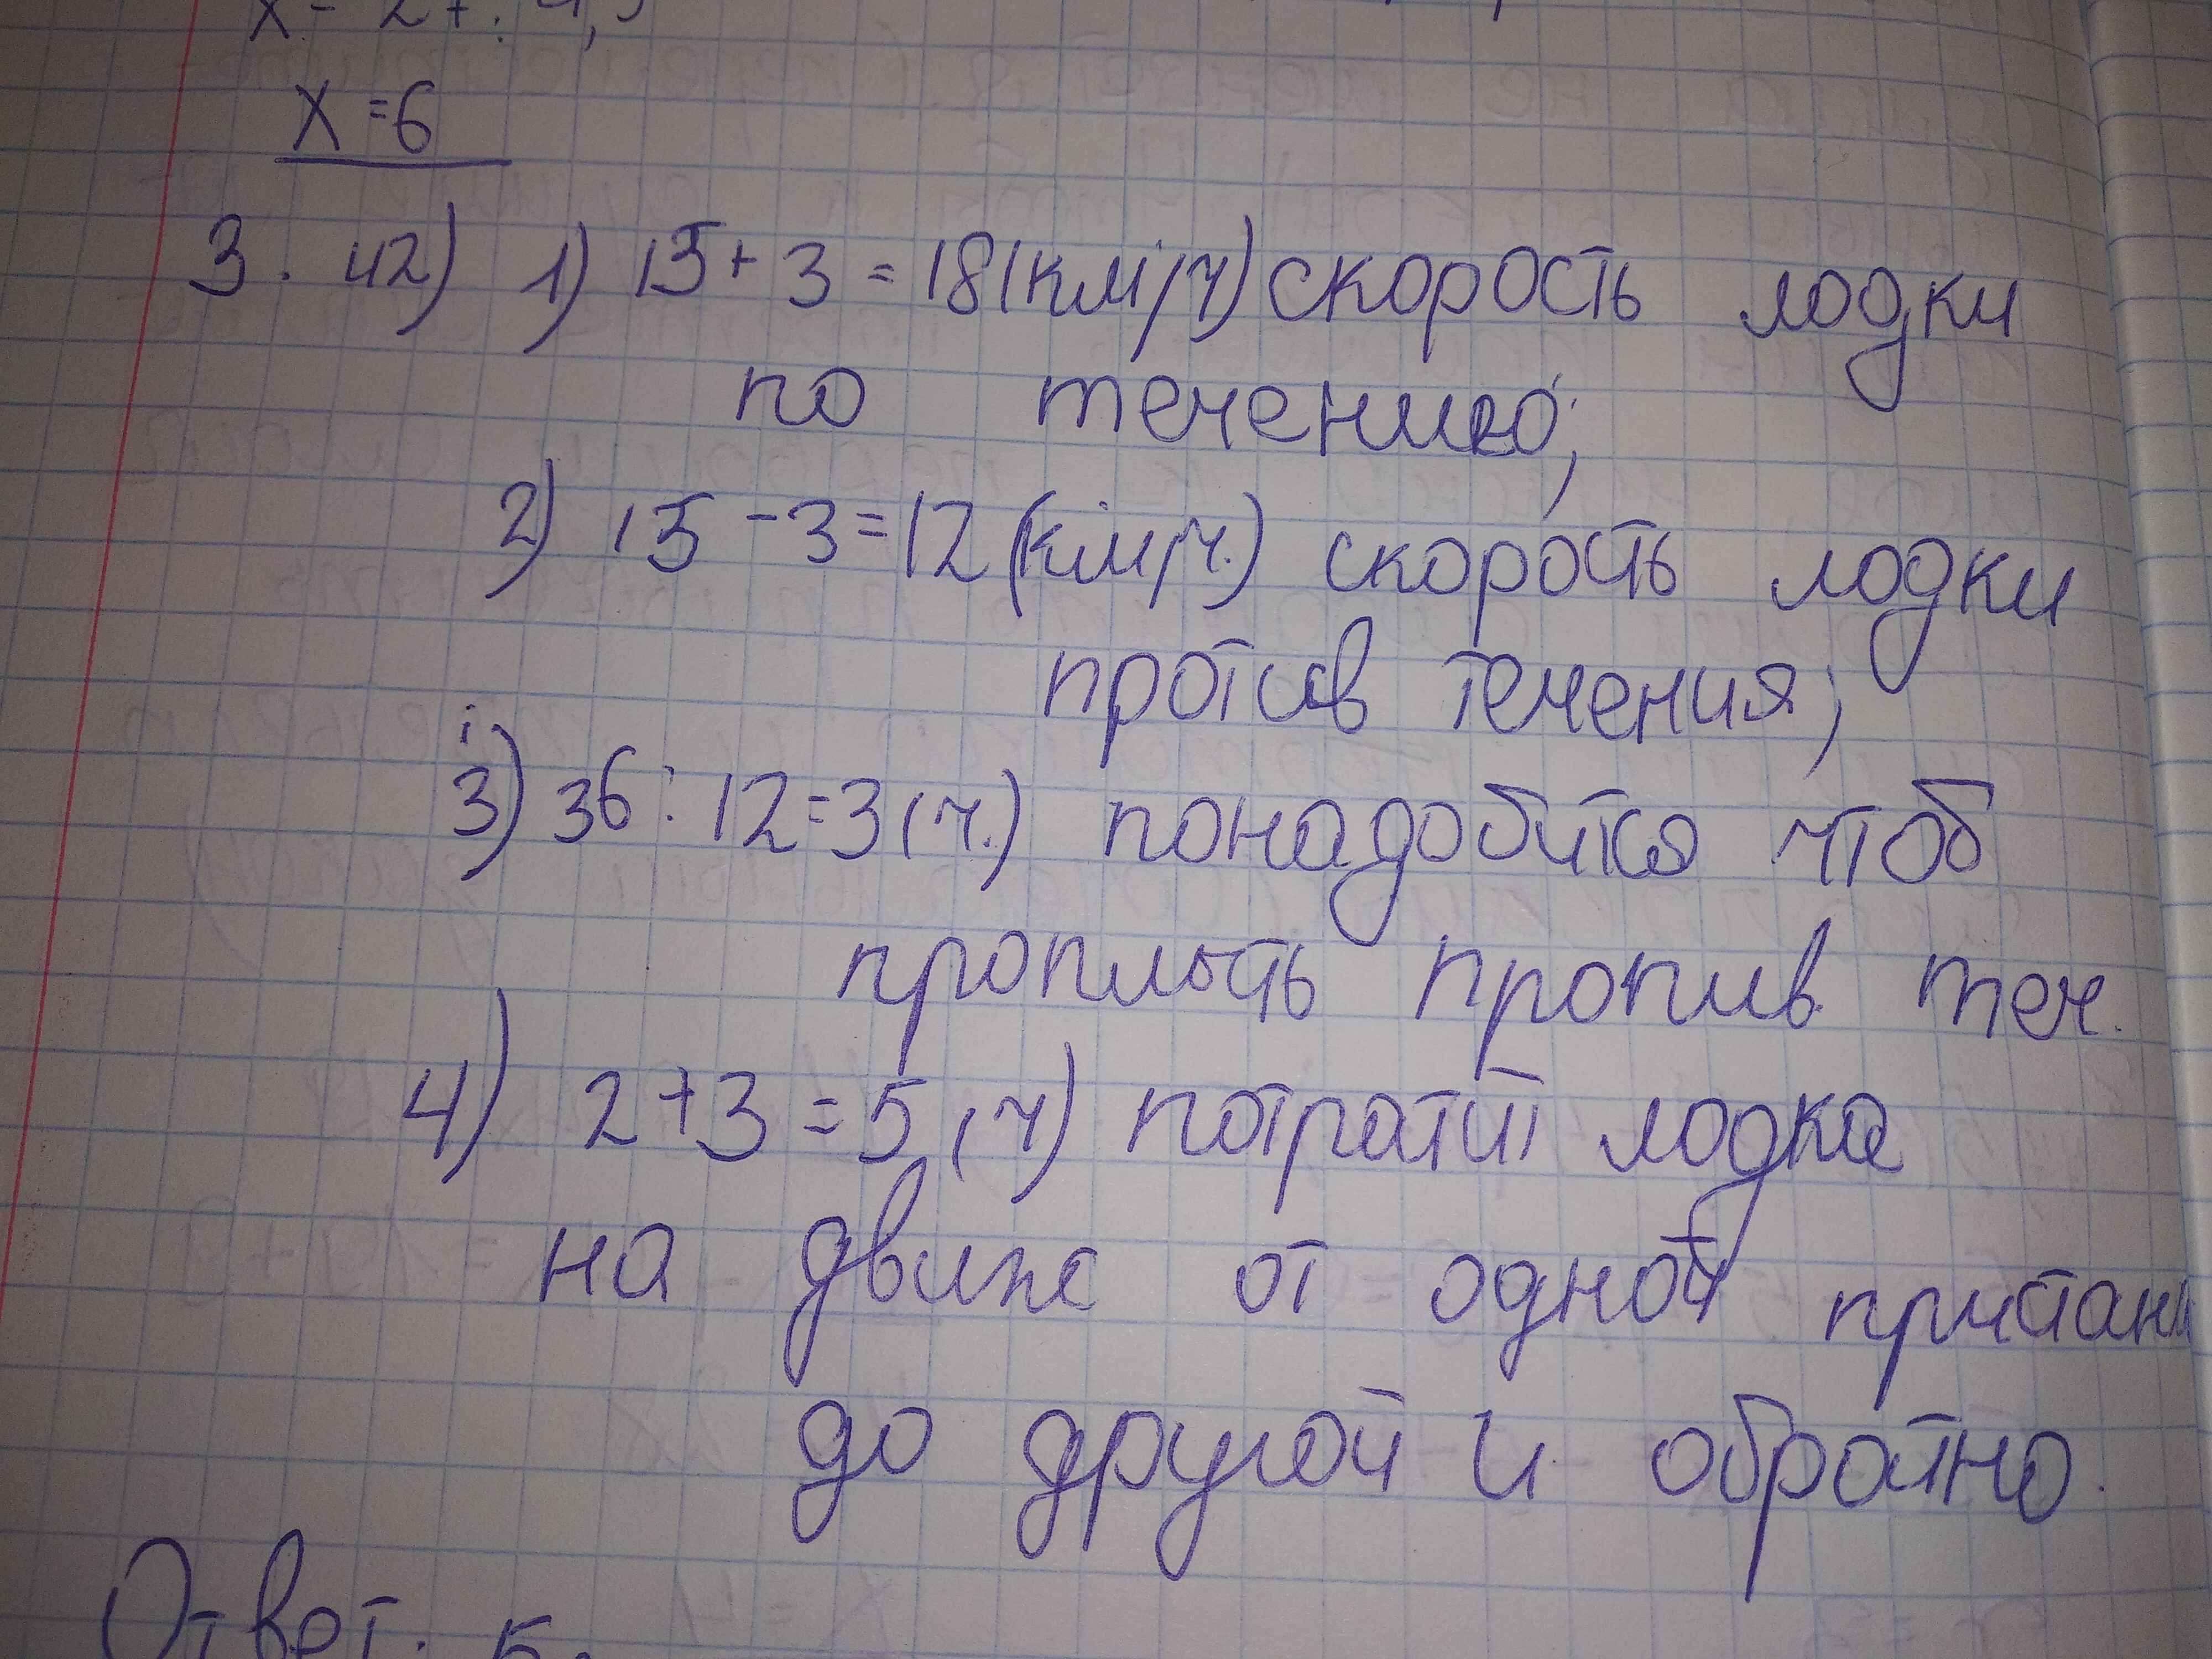 x = 27 : 4,5
x = 6
3. 42) 1) 15 + 3 = 18 (км/ч) скорость лодки
по течению;
2) 15 - 3 = 12 (км/ч.) скорость лодки
против течения;
3) 36 : 12 = 3 (ч.) понадобится чтоб
проплыть против теч.
4) 2 + 3 = 5 (ч) потратит лодка
на движ от одной пристани
до другой и обратно.
Ответ. 5